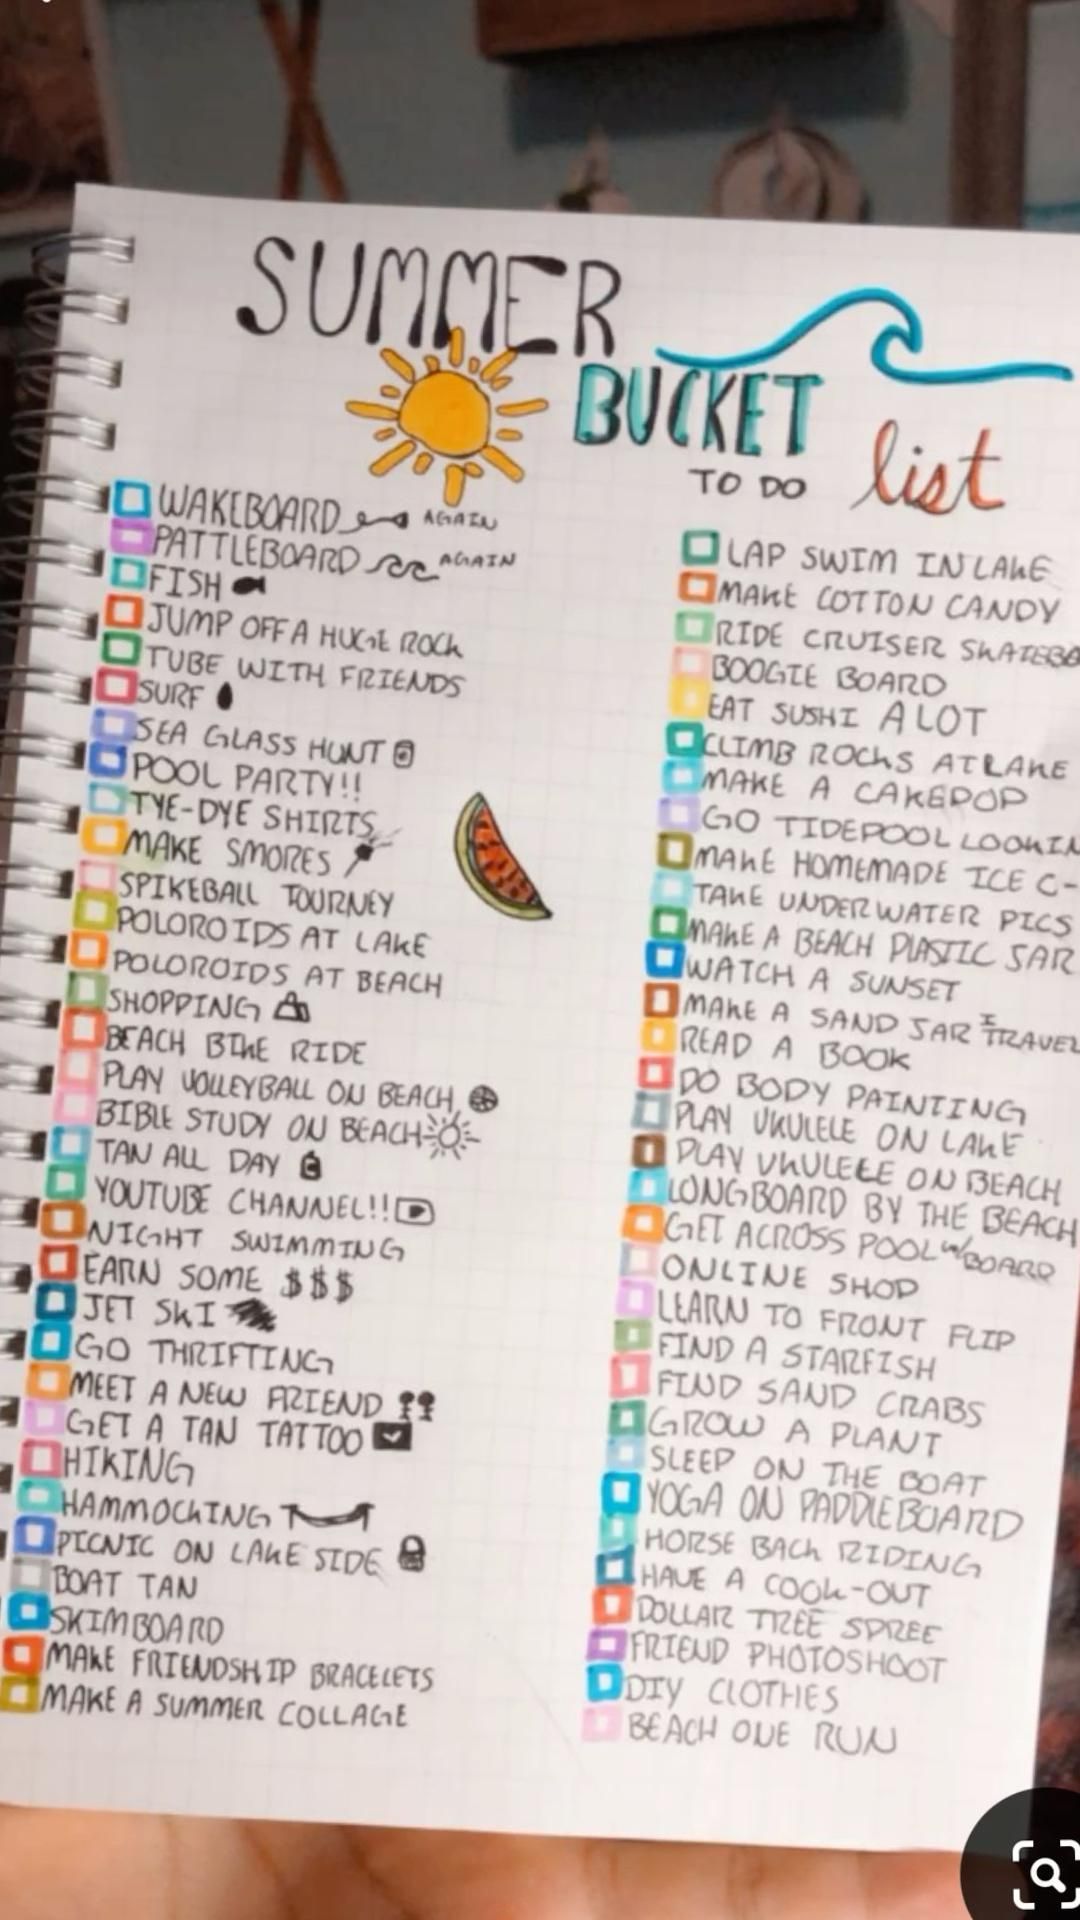 SUMMER
BUCKET
TO DO list
WAKEBOARD AGAIN
PATTLEBOARD AGAIN
FISH
JUMP OFF A HUGE ROCK
TUBE WITH FRIENDS
SURF
SEA GLASS HUNT
POOL PARTY!!
TYE-DYE SHIRTS
MAKE SMORES
SPIKEBALL TOURNEY
POLOROIDS AT LAKE
POLOROIDS AT BEACH
SHOPPING
BEACH BIKE RIDE
PLAY VOLLEYBALL ON BEACH
BIBLE STUDY ON BEACH
TAN ALL DAY
YOUTUBE CHANNEL!!
NIGHT SWIMMING
EARN SOME $$$
JET SKI
GO THRIFTING
MEET A NEW FRIEND
GET A TAN TATTOO
HIKING
HAMMOCKING
PICNIC ON LAKE SIDE
BOAT TAN
SKIMBOARD
MAKE FRIENDSHIP BRACELETS
MAKE A SUMMER COLLAGE
LAP SWIM IN LAKE
MAKE COTTON CANDY
RIDE CRUISER SKATEBO
BOOGIE BOARD
EAT SUSHI A LOT
CLIMB ROCKS AT LAKE
MAKE A CAKEPOP
GO TIDEPOOL LOOKIN
MAKE HOMEMADE ICE C-
TAKE UNDERWATER PICS
MAKE A BEACH PLASTIC JAR
WATCH A SUNSET
MAKE A SAND JAR I TRAVEL
READ A BOOK
DO BODY PAINTING
PLAY UKULELE ON LAKE
PLAY UKULELE ON BEACH
LONGBOARD BY THE BEACH
GET ACROSS POOL W/ BOARD
ONLINE SHOP
LEARN TO FRONT FLIP
FIND A STARFISH
FIND SAND CRABS
GROW A PLANT
SLEEP ON THE BOAT
YOGA ON PADDLEBOARD
HORSE BACK RIDING
HAVE A COOK-OUT
DOLLAR TREE SPREE
FRIEND PHOTOSHOOT
DIY CLOTHES
BEACH ONE RUN